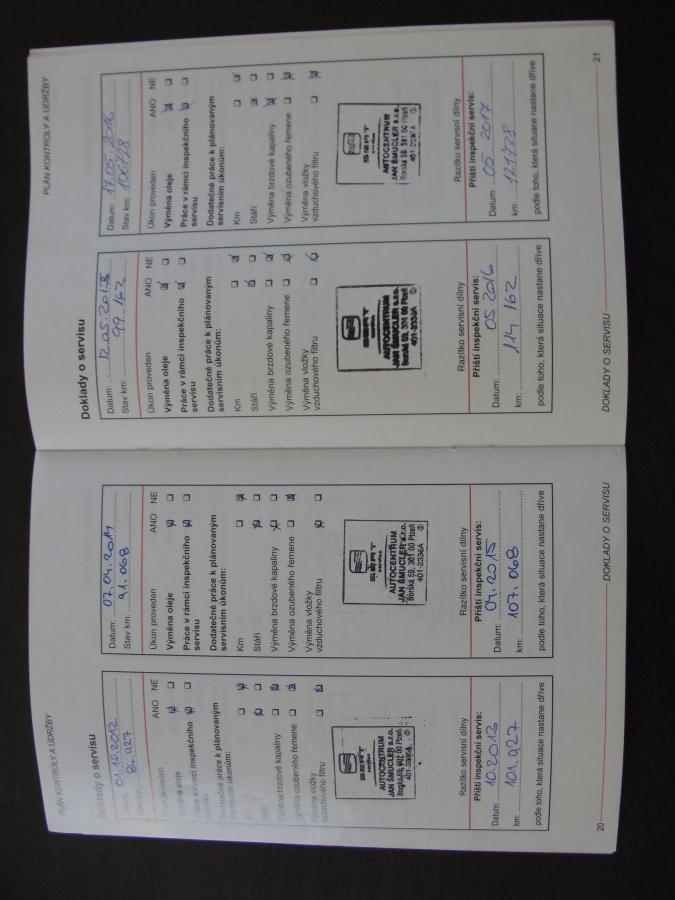 PLÁN KONTROLY A ÚDRŽBY
Doklady o servisu
Datum: 01.10.2012
86.927
Úkon proveden ANO NE
Výměna oleje
Práce v rámci inspekčního
servisu
Dodatečné práce k plánovaným
servisním úkonům:
Km
Stáří
Výměna brzdové kapaliny
Výměna ozubeného řemene
Výměna vložky
vzduchového filtru
SEAT
service
AUTOCENTRUM
JAN ŠMUCLER s.r.o.
Borská 59, 301 00 Plzeň
401-2336A
Razítko servisní dílny
Příští inspekční servis:
Datum: 10.2013
km: 101.927
podle toho, která situace nastane dříve
20
Datum: 07.04.2014
Stav km: 91.068
Úkon proveden ANO NE
Výměna oleje
Práce v rámci inspekčního
servisu
Dodatečné práce k plánovaným
servisním úkonům:
Km
Stáří
Výměna brzdové kapaliny
Výměna ozubeného řemene
Výměna vložky
vzduchového filtru
SEAT
service
AUTOCENTRUM
JAN ŠMUCLER s.r.o.
Borská 59, 301 00 Plzeň
401-2336A
Razítko servisní dílny
Příští inspekční servis:
Datum: 04.2015
km: 107.068
podle toho, která situace nastane dříve
DOKLADY O SERVISU
Doklady o servisu
Datum: 12.05.2015
Stav km: 99.162
Úkon proveden ANO NE
Výměna oleje
Práce v rámci inspekčního
servisu
Dodatečné práce k plánovaným
servisním úkonům:
Km
Stáří
Výměna brzdové kapaliny
Výměna ozubeného řemene
Výměna vložky
vzduchového filtru
SEAT
service
AUTOCENTRUM
JAN ŠMUCLER s.r.o.
Borská 59, 301 00 Plzeň
401-2336A
Razítko servisní dílny
Příští inspekční servis:
Datum: 05.2016
km: 114.162
podle toho, která situace nastane dříve
DOKLADY O SERVISU
PLÁN KONTROLY A ÚDRŽBY
Datum: 17.05.2016
Stav km: 106728
Úkon proveden ANO NE
Výměna oleje
Práce v rámci inspekčního
servisu
Dodatečné práce k plánovaným
servisním úkonům:
Km
Stáří
Výměna brzdové kapaliny
Výměna ozubeného řemene
Výměna vložky
vzduchového filtru
SEAT
service
AUTOCENTRUM
JAN ŠMUCLER s.r.o.
Borská 59, 301 00 Plzeň
401-2336A
Razítko servisní dílny
Příští inspekční servis:
Datum: 05.2017
km: 121728
podle toho, která situace nastane dříve
21